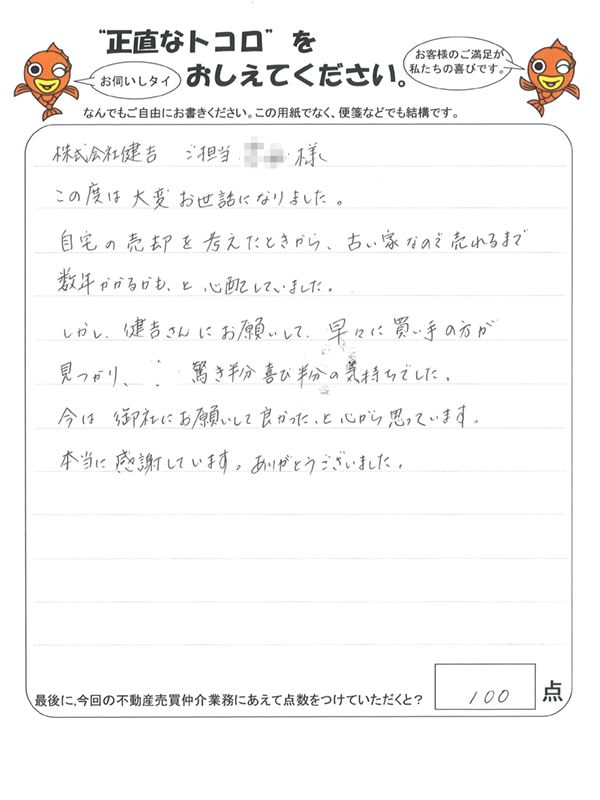 "正直なトコロ"を
おしえてください。
お伺いしタイ
お客様のご満足が
私たちの喜びです。
なんでもご自由にお書きください。この用紙でなく、便箋などでも結構です。
株式会社健吉 ご担当 様
この度は大変お世話になりました。
自宅の売却を考えたときから、古い家なので売れるまで
数年かかるかも、と心配していました。
しかし、健吉さんにお願いして、早々に買い手の方が
見つかり、驚き半分喜び半分の気持ちでした。
今は御社にお願いして良かった、と心から思っています。
本当に感謝しています。ありがとうございました。
最後に,今回の不動産売買仲介業務にあえて点数をつけていただくと? 100 点